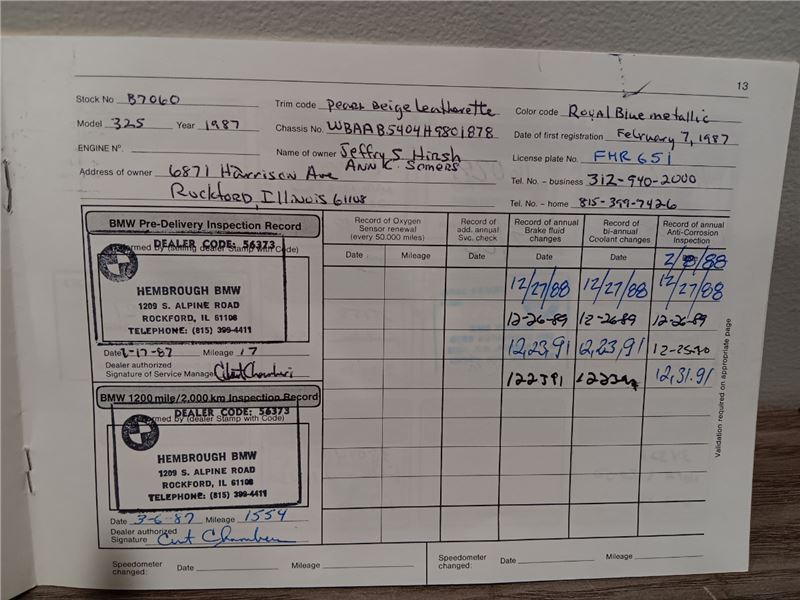 13
Stock No B7060
Trim code Pearl Beige Leatherette
Color code Royal Blue metallic
Model 325 Year 1987
Chassis No. WBAAB5404H9801878
Date of first registration February 7, 1987
ENGINE Nº.
Name of owner Jeffry S. Hirsh
Ann K. Somers
License plate No. FMR 651
Address of owner 6871 Harrison Ave
Tel. No. – business 312-940-2000
Rockford, Illinois 61108
Tel. No. – home 815-399-7426
BMW Pre-Delivery Inspection Record
DEALER CODE: 56373
formed by (selling dealer Stamp with Code)
HEMBROUGH BMW
1209 S. ALPINE ROAD
ROCKFORD, IL 61108
TELEPHONE: (815) 399-4411
Date 2-17-87 Mileage 17
Dealer authorized
Signature of Service Manager
BMW 1200 mile/2,000 km Inspection Record
DEALER CODE: 56373
formed by (dealer Stamp with Code)
HEMBROUGH BMW
1209 S. ALPINE ROAD
ROCKFORD, IL 61108
TELEPHONE: (815) 399-4411
Date 3-6-87 Mileage 1554
Dealer authorized
Signature Curt Chambers
Record of Oxygen
Sensor renewal
(every 50.000 miles)
Record of
add. annual
Svc. check
Record of annual
Brake fluid
changes
Record of
bi-annual
Coolant changes
Record of annual
Anti-Corrosion
Inspection
Date Mileage Date Date Date 2/8/88
12/27/88 12/27/88 12/27/88
12-26-89 12-26-89 12-26-89
12,23,91 12,23,91
122391
12,31.91
Validation required on appropriate page
Speedometer
changed: Date Mileage
Speedometer
changed: Date Mileage